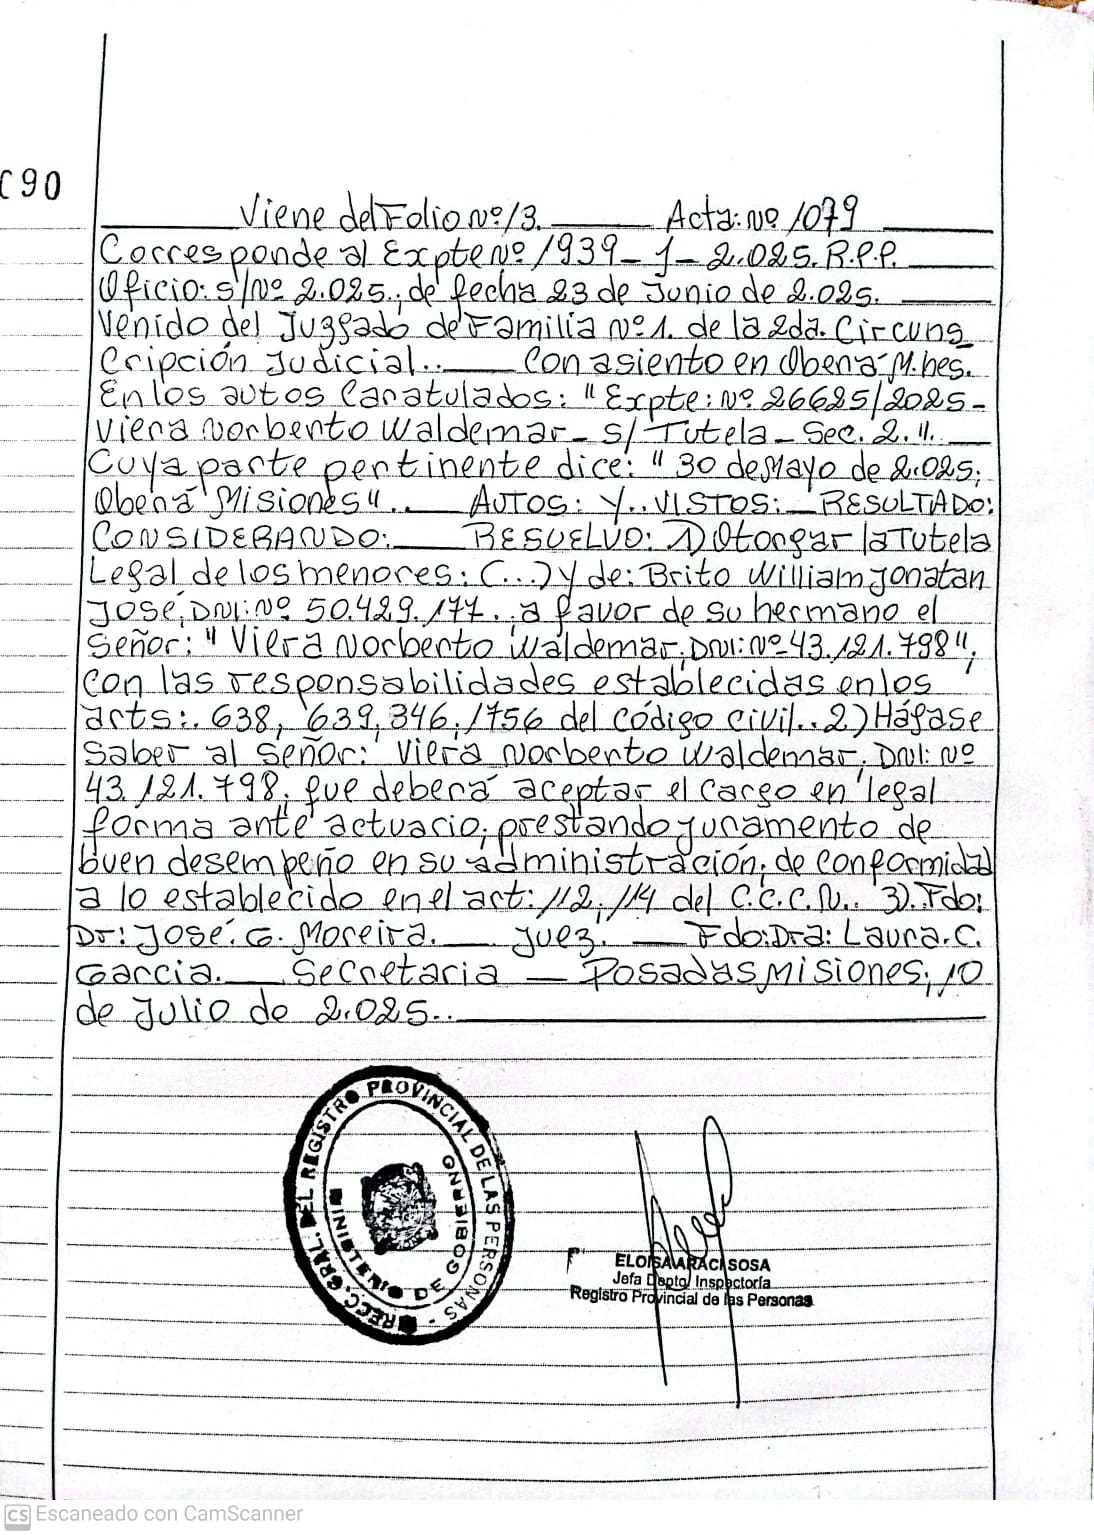 C90
Viene del Folio Nº 13. Acta: Nº 1079
Corresponde al Expte Nº 1939-1-2.025. R.P.P.
Oficio: S/Nº 2.025., de fecha 23 de Junio de 2.025.
Venido del Juzgado de Familia Nº 1. de la 2da. Circuns
cripción Judicial.. Con asiento en Oberá-M.nes.
En los autos Caratulados: "Expte: Nº 26625/2025-
Viera Norberto Waldemar- S/ Tutela - Sec. 2.".
Cuya parte pertinente dice: "30 de Mayo de 2.025;
Oberá Misiones". AUTOS: Y.. VISTOS: RESULTADO:
CONSIDERANDO: RESUELVO: 1) Otorgar la Tutela
Legal de los menores: (...) y de: Brito William Jonatan
José, DNI: Nº 50.429.177.. a favor de su hermano el
Señor: "Viera Norberto Waldemar; DNI: Nº 43.121.798",
Con las responsabilidades establecidas en los
arts:. 638, 639, 846, 1756 del Código Civil.. 2) Hágase
Saber al Señor: Viera Norberto Waldemar; DNI: Nº
43.121.798. que deberá aceptar el Cargo en legal
forma ante actuacio; prestando juramento de
buen desempeño en su administración; de Conformidad
a lo establecido en el art: 112, 114 del C.C.C.N.. 3). Fdo:
Dr: José. G. Moreira. Juez. Fdo: Dra: Laura. C.
Garcia. Secretaria Posadas Misiones; 10
de Julio de 2.025..
DIRECC. GRAL. DEL REGISTRO PROVINCIAL DE LAS PERSONAS -
MINISTERIO DE GOBIERNO
ELOISA ARACI SOSA
Jefa Depto. Inspectoría
Registro Provincial de las Personas
CS Escaneado con CamScanner